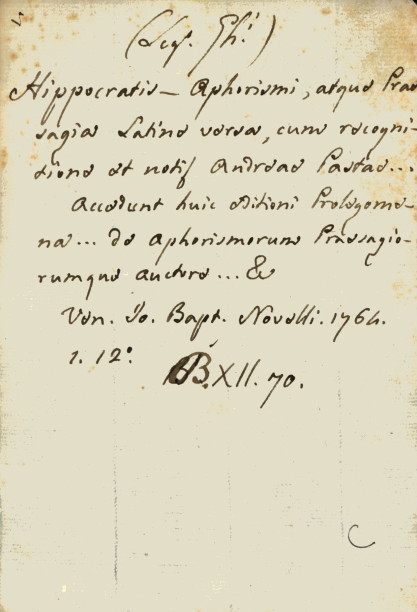 (Leg. Ghi)
Hippocratis - Aphorismi, atque Prae
sagia Latine versa, cum recogni-
tione et notis Andreae Pastae...
Accedunt huic editioni Prolegome-
na... de Aphorismorum Praesagio-
rumque auctore... &
Ven. Jo. Bapt. Novelli. 1764.
1. 12º.
B. XII. 70.